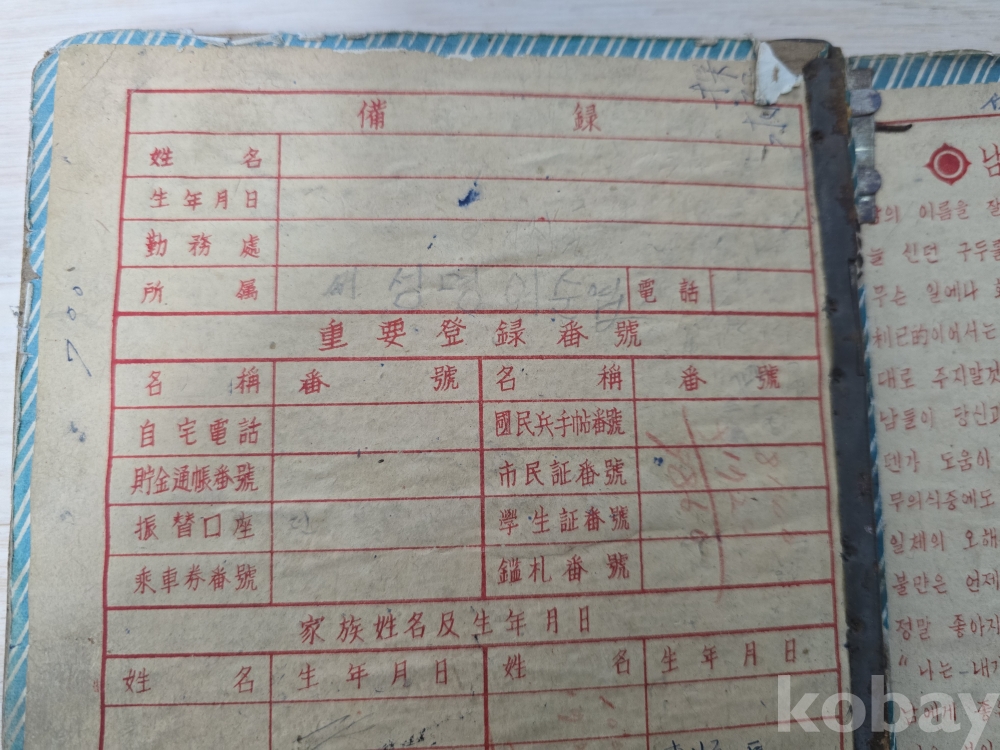 備錄
姓名
生年月日
勤務處
所属 電話
重要登録番號
名稱 番號 名稱 番號
自宅電話 國民兵手帖番號
貯金通帳番號 市民証番號
振替口座 學生証番號
乘車券番號 鑑札番號
家族姓名及生年月日
姓名 生年月日 姓名 生年月日
남
의 이름을 잘
늘 신던 구두를
무슨 일에나
利己的이어서는
대로 주지말것
남들이 당신과
덴가 도움이
무의식중에도
일체의 오해
불만은 언제
정말 좋아지
"나는 내가
남에게 좋
kobay